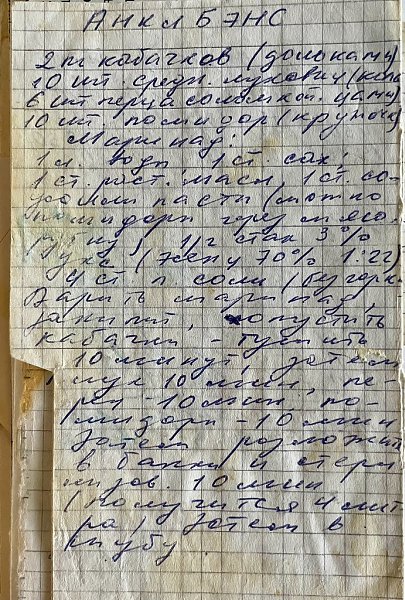 АНКЛ БЭНС
2 кг кабачков (дольками)
10 шт. средн. луковиц (
6 шт. перца соломкой.
10 шт. помидор (кружоч)
Маринад:
1 л. воды 1 ст. сах.
1 ст. раст. масл, 1 ст.
пасты (можно
помидоры через мясо-
рубку), 1/2 стак 3%
укс (уксу 70% 1:22)
4 ст л соли (без горк.
Варить маринад,
закипит, опустить
кабачки - тушить
10 минут, затем
лук 10 мин, пе-
рец - 10 мин, по-
мидоры - 10 мин
Затем разложить
в банки и стери
лизов. 10 мин
(получится 4 лит
ра) Затем в
шубу